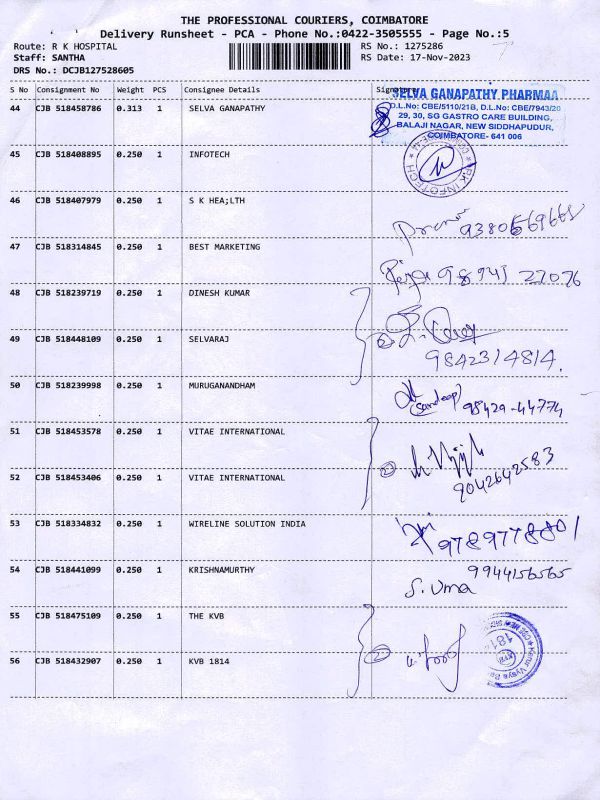 THE PROFESSIONAL COURIERS, COIMBATORE
Delivery Runsheet - PCA - Phone No.:0422-3505555 - Page No.:5
Route: R K HOSPITAL RS No.: 1275286
Staff: SANTHA RS Date: 17-Nov-2023
DRS No.: DCJB127528605
S No Consignment No Weight PCS Consignee Details Signature
SELVA GANAPATHY PHARMAA
44 CJB 518458786 0.313 1 SELVA GANAPATHY
D.L.No: CBE/5110/21B, D.L.No: CBE/7943/20
29, 30, SG GASTRO CARE BUILDING,
BALAJI NAGAR, NEW SIDDHAPUDUR,
COIMBATORE- 641 006
45 CJB 518408895 0.250 1 INFOTECH
RK INFOTECH
46 CJB 518407979 0.250 1 S K HEA;LTH
47 CJB 518314845 0.250 1 BEST MARKETING
98941 27076
48 CJB 518239719 0.250 1 DINESH KUMAR
49 CJB 518448109 0.250 1 SELVARAJ
9842314814.
50 CJB 518239998 0.250 1 MURUGANANDHAM
(Sandeep) 98429-44774
51 CJB 518453578 0.250 1 VITAE INTERNATIONAL
52 CJB 518453406 0.250 1 VITAE INTERNATIONAL
9042642583
53 CJB 518334832 0.250 1 WIRELINE SOLUTION INDIA
9789778801
54 CJB 518441099 0.250 1 KRISHNAMURTHY
9944156565
S. Uma
55 CJB 518475109 0.250 1 THE KVB
56 CJB 518432907 0.250 1 KVB 1814